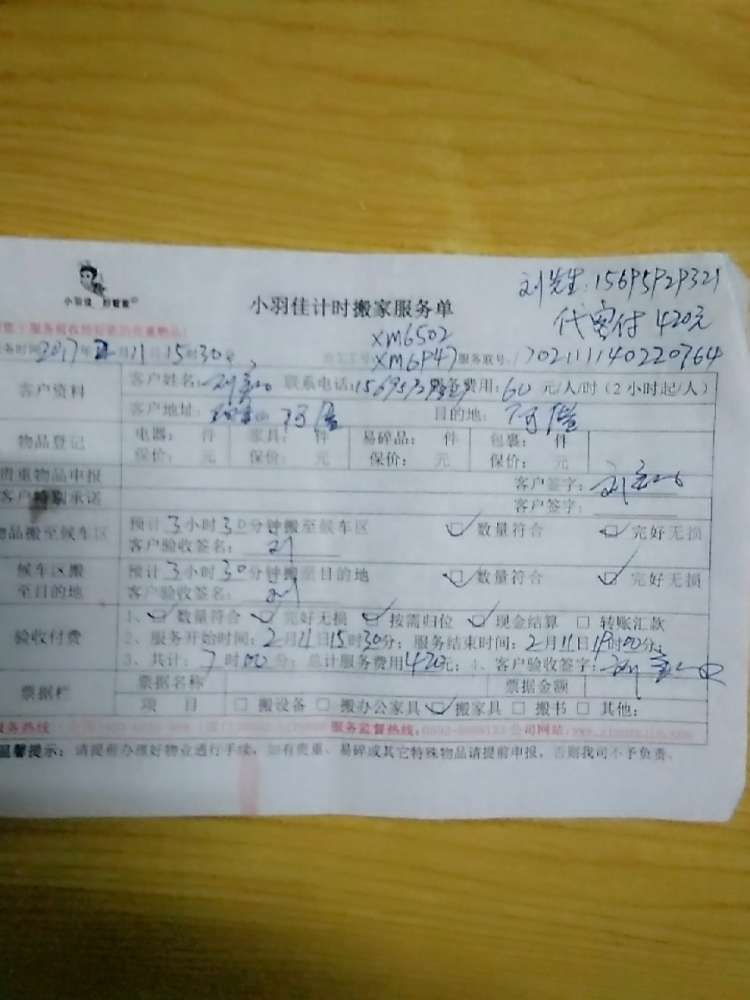 刘先生:15695929321
代客付 420元
小羽佳计时搬家服务单
XM6502
务时间 2017年2月11日15时30分
XM6P47 服务联号:170211140220764
客户资料
客户姓名: 刘 联系电话: 服务费用:60 元/人/时(2小时起/人)
客户地址: 目的地:
物品登记
电器: 件 家具: 件 易碎品: 件 包裹: 件
保价: 元 保价: 元 保价: 元 保价: 元
贵重物品申报 客户签字: 刘
客户特别承诺 客户签字:
物品搬至候车区
预计3小时30分钟搬至候车区 数量符合 完好无损
客户验收签名: 刘
候车区搬至目的地
预计3小时30分钟搬至目的地 数量符合 完好无损
客户验收签名: 刘
验收付费
1、数量符合 完好无损 按需归位 现金结算 转账汇款
2、服务开始时间:2月11日15时30分;服务结束时间:2月11日19时00分;
3、共计:7时00分;总计服务费用420元;4、客户验收签字: 刘
票据栏
票据名称 票据金额
项 目 搬设备 搬办公家具 搬家具 搬书 其他:
服务热线: 服务监督热线: 公司网站:
温馨提示:请提前办理好物业通行手续,如有贵重、易碎或其它特殊物品请提前申报,否则我司不予负责。